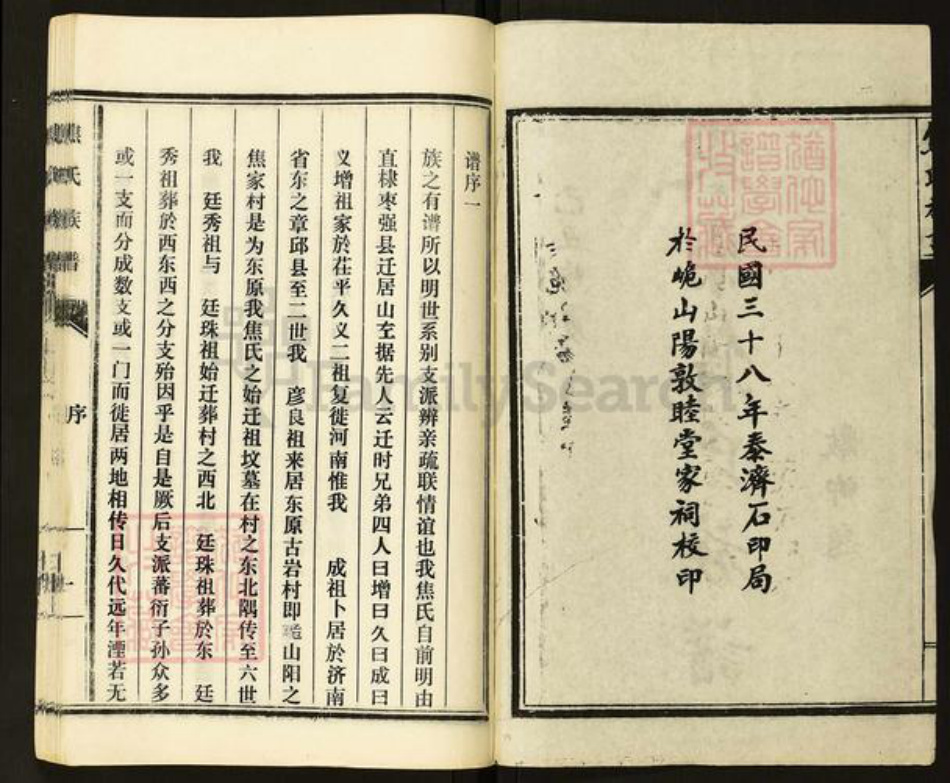 民國三十八年泰濟石印局
於峗山陽敦睦堂家祠校印
谱序一
族之有谱所以明世系别支派辨亲疏联情谊也我焦氏自前明由
直棣枣强县迁居山左据先人云迁时兄弟四人曰增曰久曰成曰
义增祖家於茌平久义二祖复徙河南惟我 成祖卜居於济南
省东之章邱县至二世我 彦良祖来居东原古岩村即峗山阳之
焦家村是为东原我焦氏之始迁祖坟墓在村之东北隅传至六世
我 廷秀祖与 廷珠祖始迁葬村之西北 廷珠祖葬於东 廷
秀祖葬於西东西之分支殆因乎是自是厥后支派蕃衍子孙众多
或一支而分成数支或一门而徙居两地相传日久代远年湮若无
焦氏族谱
序
一
FamilySearch